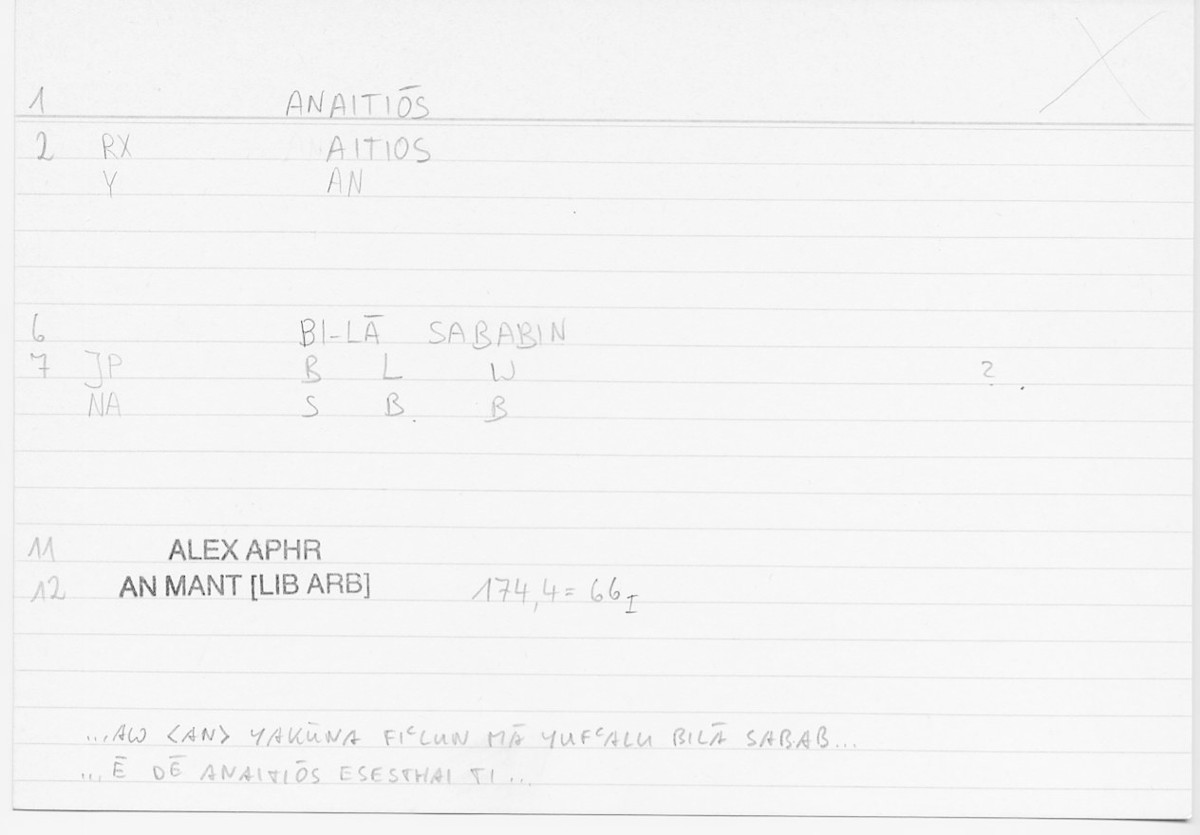 1 ANAITIŌS
2 RX AITIOS
Y AN
6 BI-LĀ SABABIN
7 JP B L W ?
NA S B B
11 ALEX APHR
12 AN MANT [LIB ARB] 174,4 = 66 I
...AW <AN> YAKŪNA FIᶜLUN MĀ YUFᶜALU BILĀ SABAB...
...Ē DĒ ANAITIŌS ESESTHAI TI...